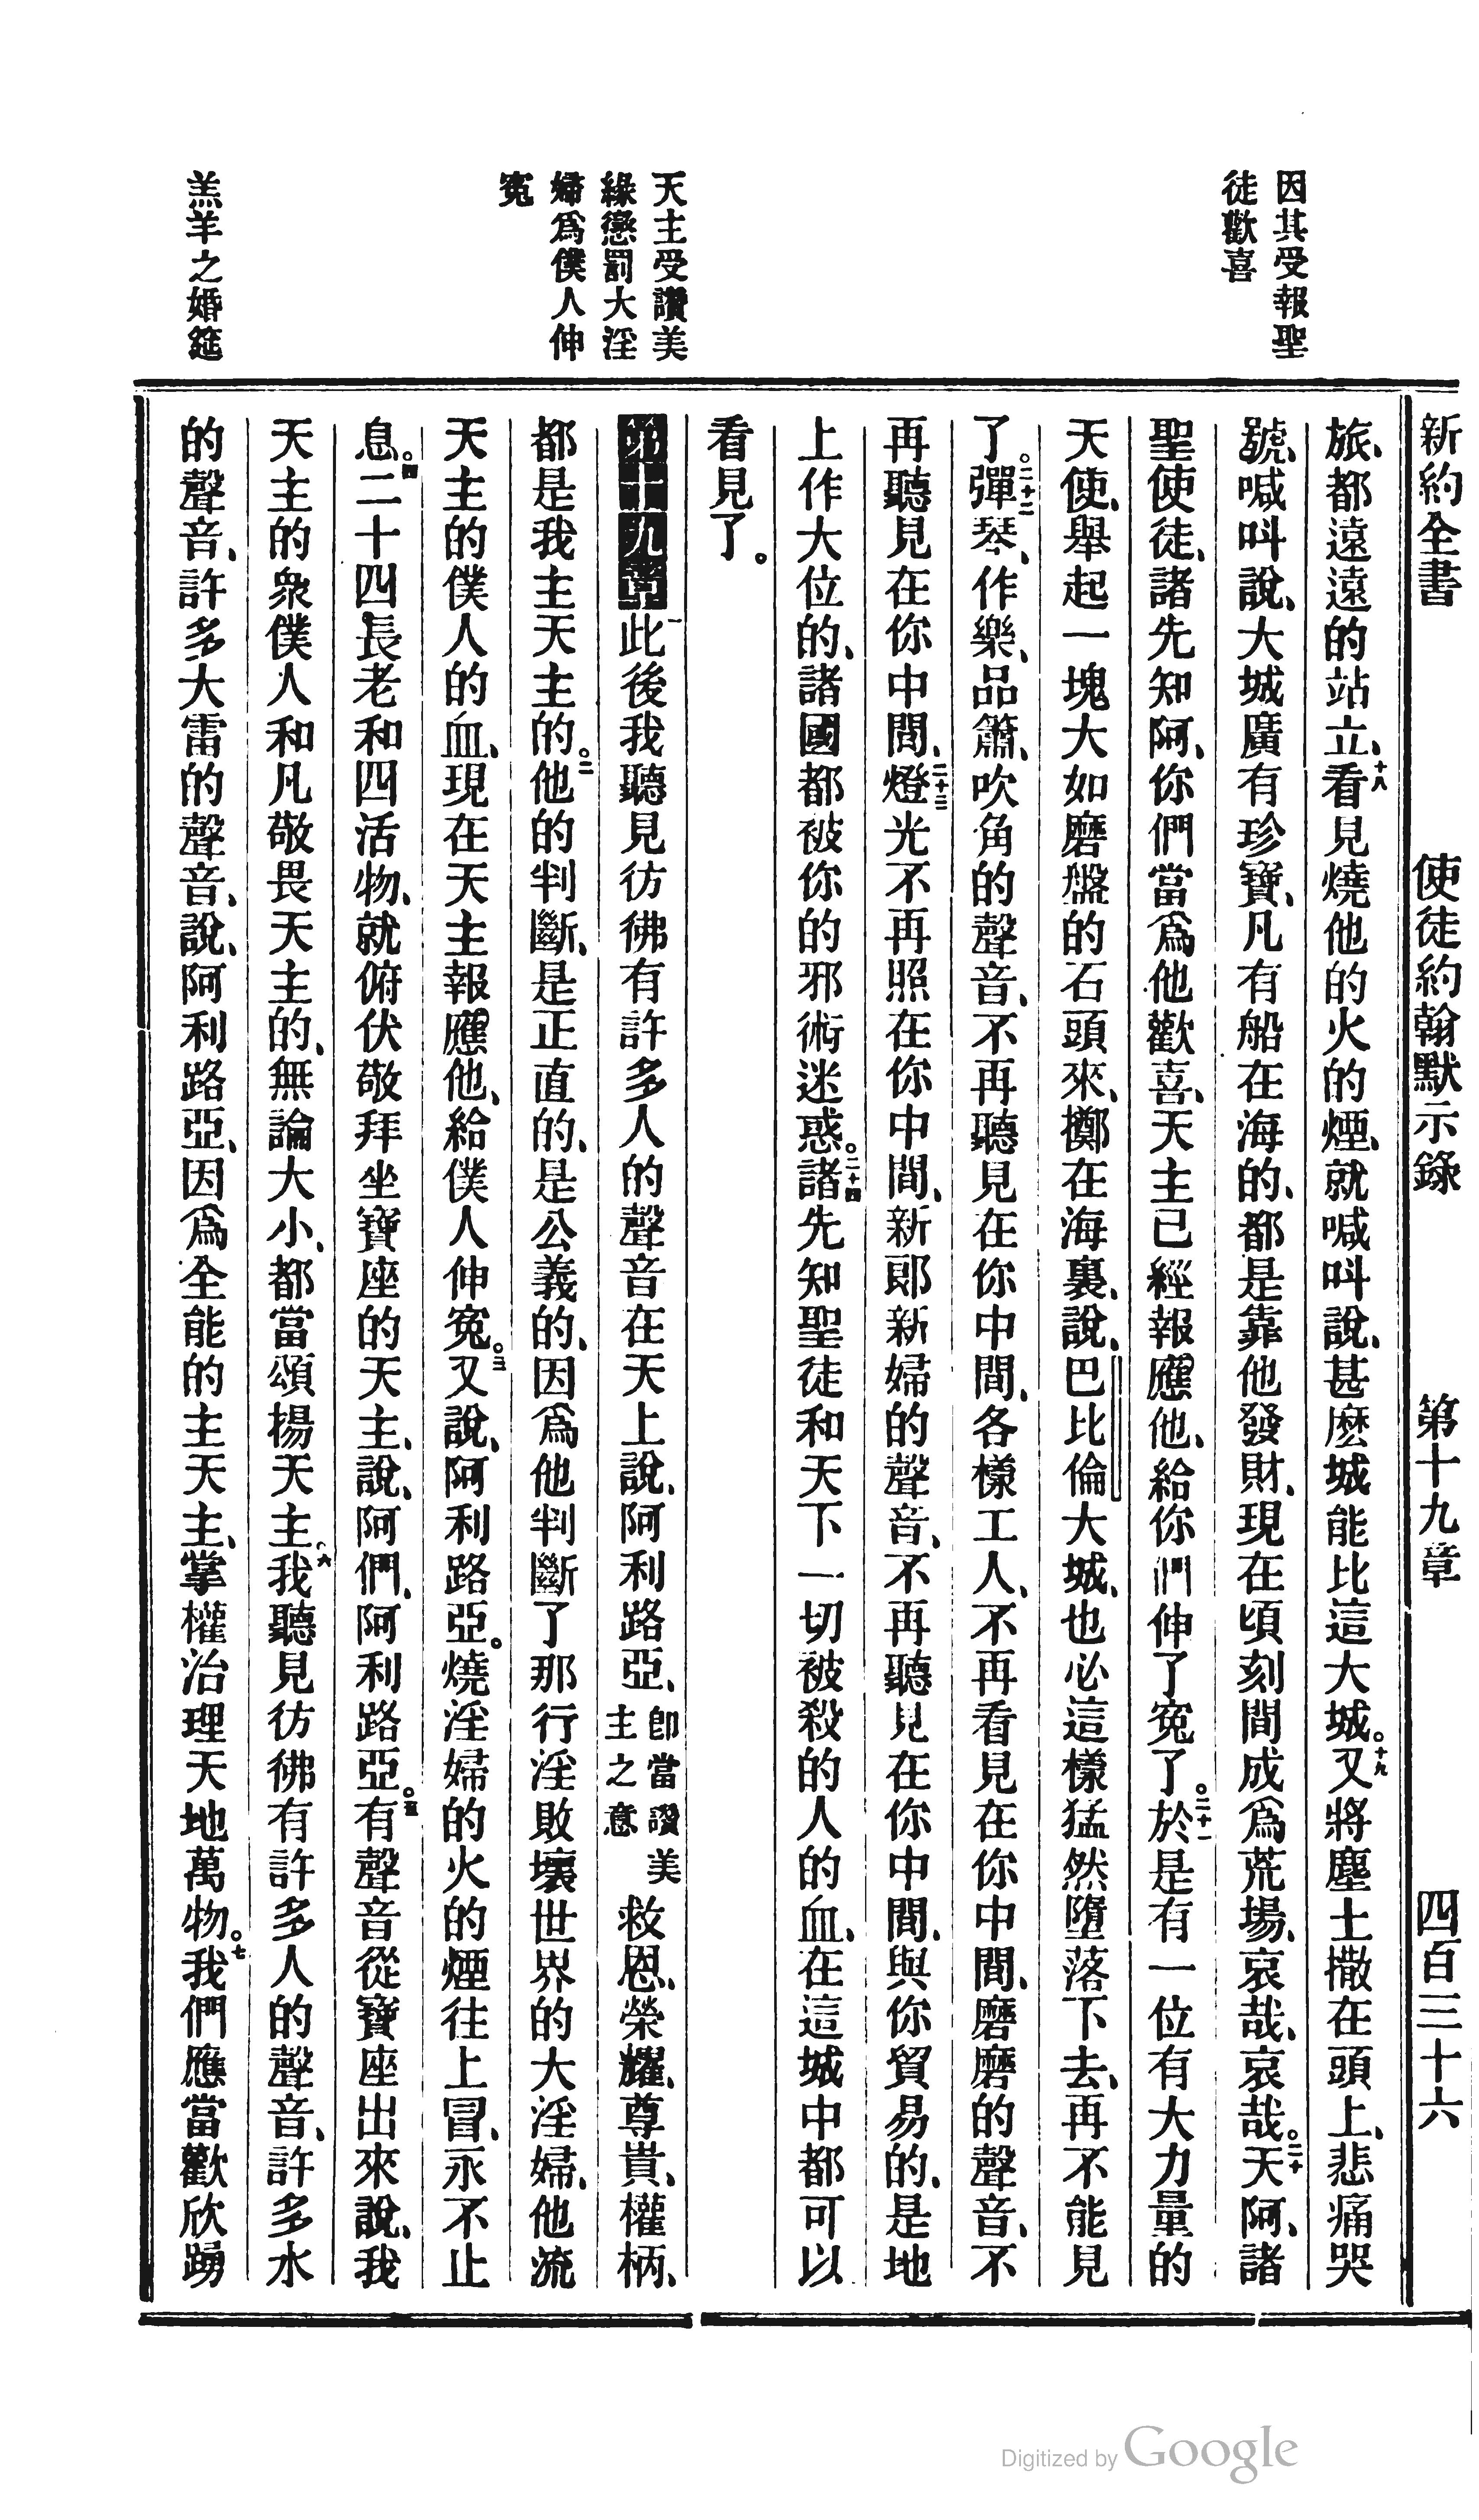 新約全書 使徒約翰默示錄 第十九章 四百三十六
因其受報聖
徒歡喜
旅、都遠遠的站立、十八看見燒他的火的煙、就喊叫說、甚麽城能比這大城。十九又將塵土撒在頭上、悲痛哭
號、喊叫說、大城廣有珍寶、凡有船在海的、都是靠他發財、現在頃刻間成爲荒場、哀哉、哀哉。二十天阿、諸
聖使徒、諸先知阿、你們當爲他歡喜、天主已經報應他、給你們伸了寃了。二十一於是有一位有大力量的
天使、舉起一塊大如磨盤的石頭來、擲在海裏、說、巴比倫大城、也必這樣猛然墮落下去、再不能見
了。二十二彈琴、作樂、品簫、吹角的聲音、不再聽見在你中間、各樣工人、不再看見在你中間、磨磨的聲音、不
再聽見在你中間、二十三燈光不再照在你中間、新郞新婦的聲音、不再聽見在你中間、與你貿易的、是地
上作大位的、諸國都被你的邪術迷惑。二十四諸先知聖徒和天下一切被殺的人的血、在這城中都可以
看見了。
天主受讚美
緣懲罰大淫
婦爲僕人伸
寃
第十九章一此後我聽見彷彿有許多人的聲音在天上說、阿利路亞、卽當讚美主之意救恩、榮耀、尊貴、權柄、
都是我主天主的。二他的判斷、是正直的、是公義的、因爲他判斷了那行淫敗壞世界的大淫婦、他流
天主的僕人的血、現在天主報應他、給僕人伸寃。三又說、阿利路亞。燒淫婦的火的煙往上冒、永不止
息。四二十四長老和四活物、就俯伏敬拜坐寶座的天主、說、阿們、阿利路亞。五有聲音從寶座出來說、我
天主的衆僕人和凡敬畏天主的、無論大小、都當頌揚天主。六我聽見彷彿有許多人的聲音、許多水
羔羊之婚筵
的聲音、許多大雷的聲音、說、阿利路亞、因爲全能的主天主、掌權治理天地萬物。七我們應當歡欣踴
Digitized by Google